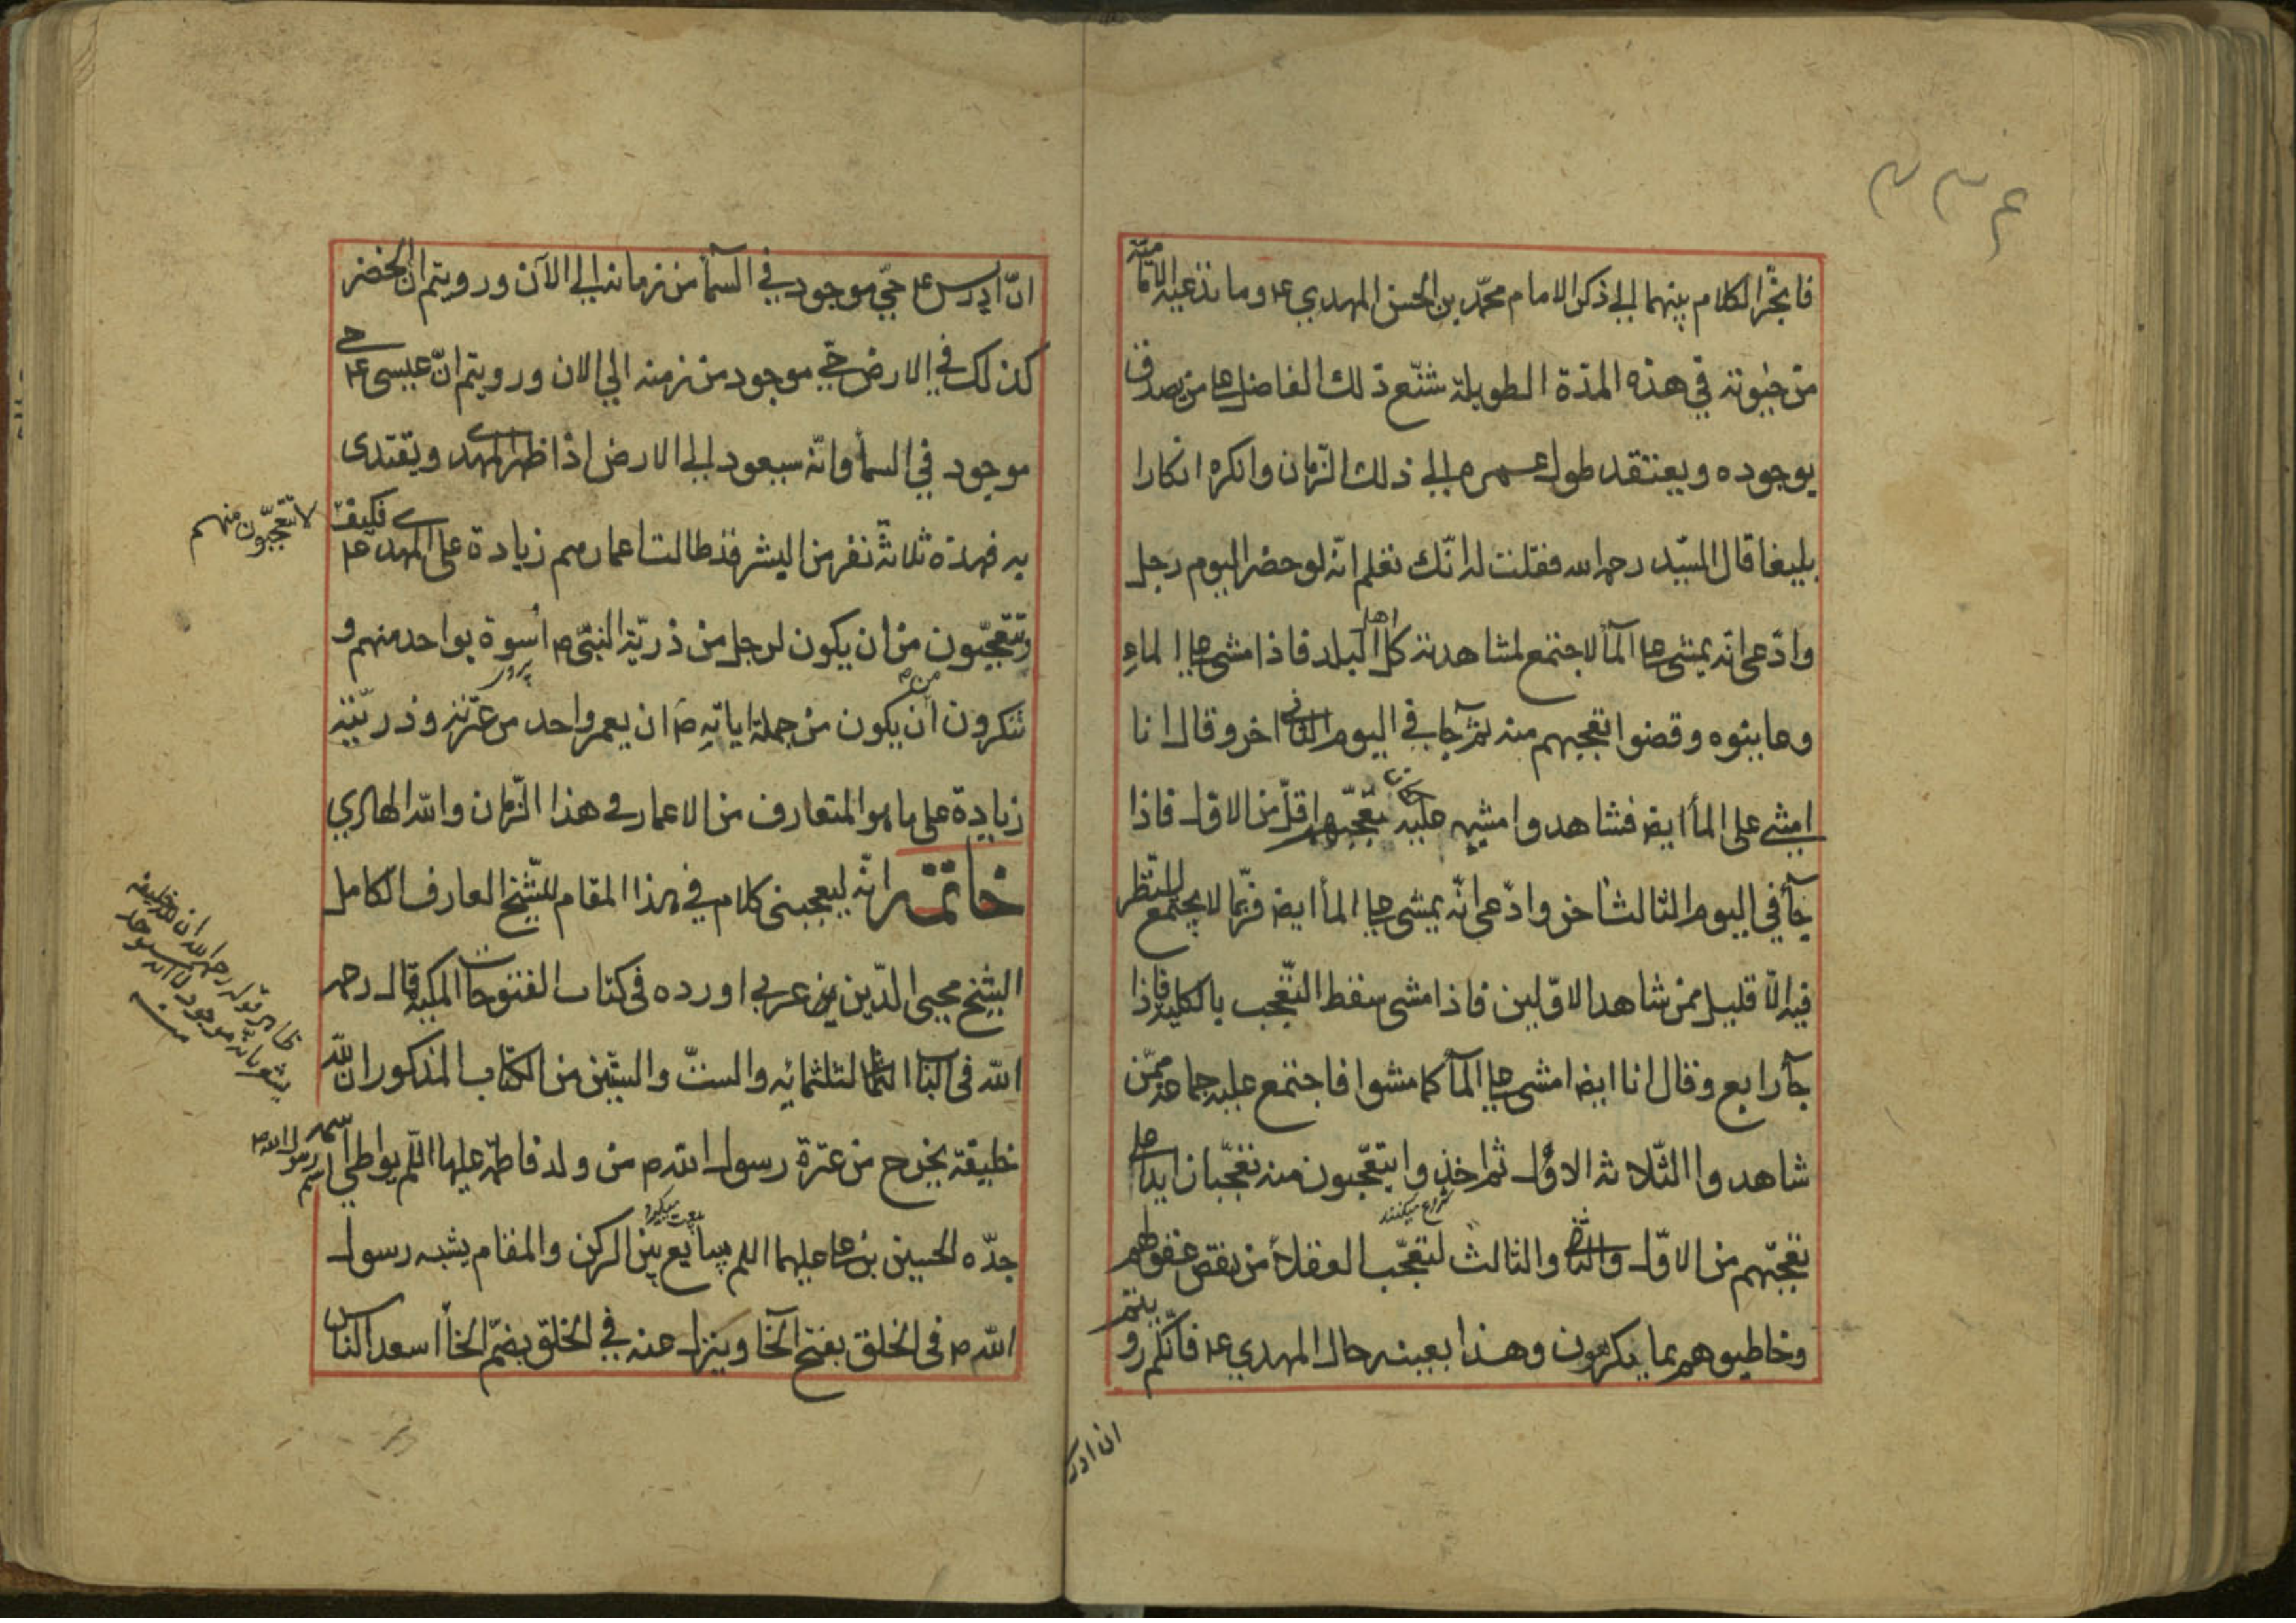 ۴۳۳
فانجرّ الكلام بينهما الى ذكر الامام محمّد بن الحسن المهدي ع وما تدّعيه الاماميّة
من حيوته في هذه المدّة الطويلة شنّع ذلك الفاضل على من يصدق
بوجوده ويعتقد طول عمره الى ذلك الزمان وانكره انكارا
بليغا قال السيّد رحمه الله فقلت له انّك تعلم انّه لو حضر اليوم رجل
وادّعى انّه يمشى على المآء لاجتمع لمشاهدته كل اهل البلد فاذا مشى على الماءِ
وعاينوه وقضوا تعجبهم منه ثم جآء في اليوم الثاني اخر وقال انا
امشي على المآء ايضا فشاهدوا مشيه عليه لكان تعجّبهم اقلّ من الاول فاذا
جآء في اليوم الثالث اخر وادّعى انّه يمشى على المآء ايضا فربّما لا يجتمع للنظر
فيه الّا قليل ممّن شاهد الاوّلين فاذا مشى سقط التعجب بالكلية فاذا
جآء رابع وقال انا ايضا امشى على المآء كما مشوا فاجتمع عليه جماعة ممّن
شاهدوا الثلاثة الاول ثم اخذوا يتعجّبون منه تعجّبا زايدا على
شروع میکنند
تعجّبهم من الاوّل والثانى والثالث لتعجّب العقلاء من نقص عقولهم
وخاطبوهم بما يكرهون وهذا بعينه حال المهدي ع فانّكم رويتم
ان ادر
انّ ادريس ع حيّ موجود في السمآء من زمانه الى الآن ورويتم انّ الخضر
كذلك في الارض حيّ موجود من زمنه الى الان ورويتم انّ عيسى ع حى
موجود في السمآء وانّه سيعود الى الارض اذا ظهر المهدى ويقتدى
به فهذه ثلاثة نفر من البشر قد طالت اعمارهم زيادة على المهدى ع فكيف
لا تتعجّبون منهم
وتتعجّبون من ان يكون لرجل من ذريّة النبيّ ص اُسوة بواحد منهم و
تنكرون ان يكون من جملة اياته ص ان يعمر واحد من عترته وذريّته
زيادة على ما هو المتعارف من الاعمار في هذا الزمان والله الهادي
خاتمة انّه ليعجبنى كلام في هذا المقام للشّيخ العارف الكامل
الشيخ محيى الدّين بن عربي اورده فى كتاب الفتوحات المكية قال رحمه
الله فى الباب الثالثمائه والستّ والستّين من الكتاب المذكور ان لله
ظاهر قوله رحمه الله ان لله خليفة
يشعر بانّه موجود لا انه سيوجد
منه
خليفة يخرج من عترة رسول الله ص من ولد فاطمة عليها السّلم يواطى اسمه اسم رسول الله ص
جدّه الحسين بن على عليهما السلم يبايع بين الركن والمقام يشبه رسول
بيعت میگیرد
الله ص فى الخلق بفتح الخآء وينزل عنه في الخلق بضمّ الخآء اسعد الناس